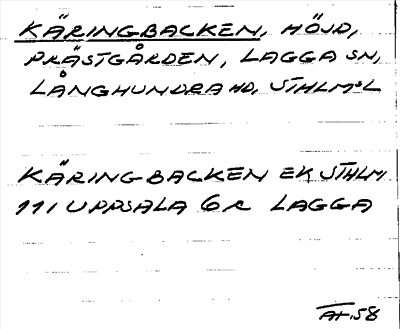 KÄRINGBACKEN, HÖJD,
PRÄSTGÅRDEN, LAGGA SN,
LÅNGHUNDRA HD, STHLMSL
KÄRINGBACKEN EK STHLM
111 UPPSALA 6R LAGGA
58